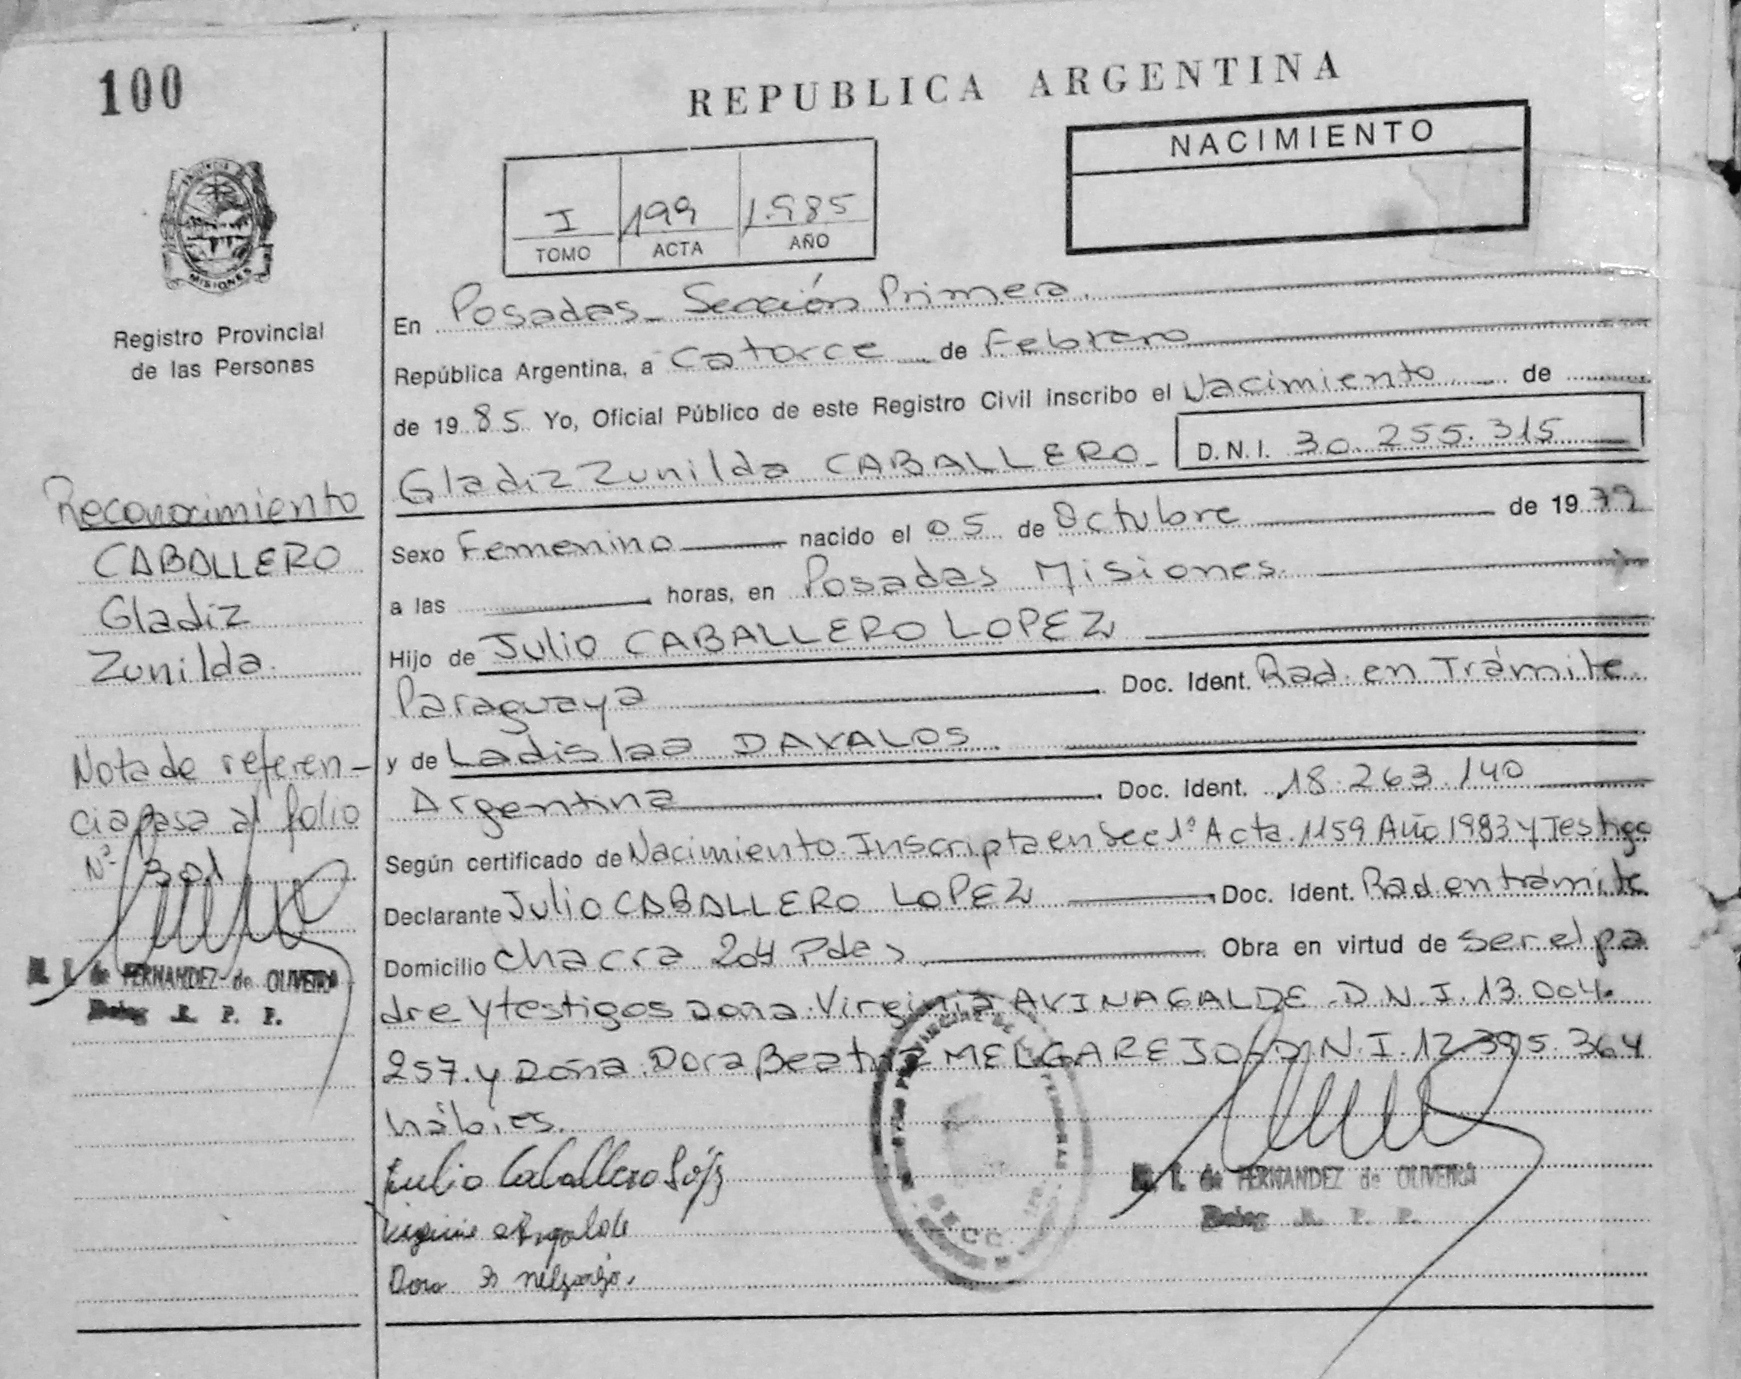 100
REPUBLICA ARGENTINA
NACIMIENTO
I 199 1.985
TOMO ACTA AÑO
MISIONES
Registro Provincial
de las Personas
En Posadas - Sección Primera.
República Argentina, a Catorce de Febrero
de 1985 Yo, Oficial Público de este Registro Civil inscribo el Nacimiento de
Gladiz Zunilda CABALLERO - D.N.I. 30.255.315
Sexo Femenino nacido el 05 de Octubre de 1979
a las horas, en Posadas Misiones.
Hijo de Julio CABALLERO LOPEZ
Paraguaya Doc. Ident. Rad. en Trámite.
y de Ladislaa DAVALOS.
Argentina Doc. Ident. 18.263.140
Según certificado de Nacimiento Inscripta en Sec 1º Acta.1159 Año 1983 y Testigo
Declarante Julio CABALLERO LOPEZ Doc. Ident. Rad en trámite
Domicilio Chacra 204 Pdas Obra en virtud de ser el pa
dre y testigos Doña Virginia AVINAGALDE D.N.I. 13.004.
257. y Doña Dora Beatriz MELGAREJO D.N.I. 12.395.364
hábies.
Julio Caballero
Dora B Melgarejo.
Reconocimiento
CABALLERO
Gladiz
Zunilda.
Nota de referen-
cia pasa al folio
Nº 301
M. I. de FERNANDEZ de OLIVEIRA
R. P. P.
M. I. de FERNANDEZ de OLIVEIRA
R. P. P.